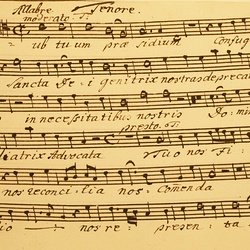 Allabre. Tenore.
moderato. T:
ub tu um præ sidium Confug
Sancta De i genitrix nostras depreca
in necessitatibus nostris Do: mi
presto. T:
iatrix Advocata Tuo nos Fi:
nos reconci lia nos Comenda
io nos re presen ta